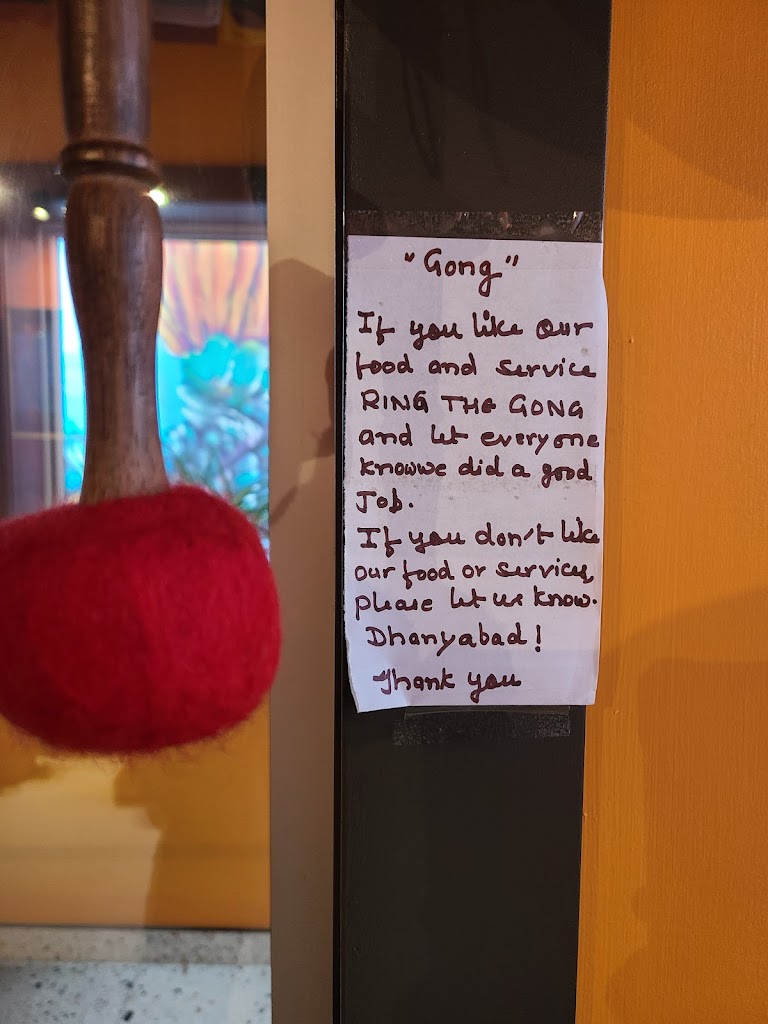 "Gong"
If you like our
food and service
RING THE GONG
and let everyone
knowwe did a good
Job.
If you don't like
our food or services,
please let us know.
Dhanyabad!
Thank you